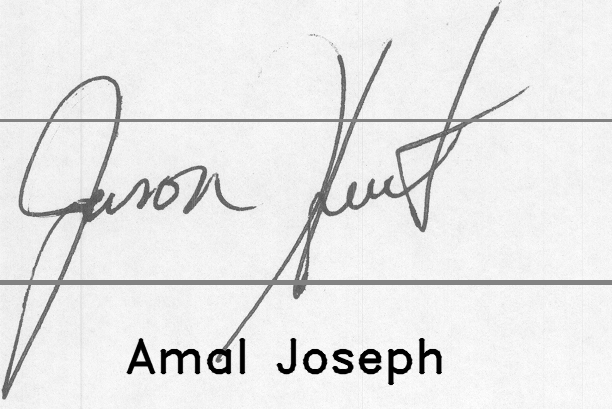 Jason Kent
Amal Joseph